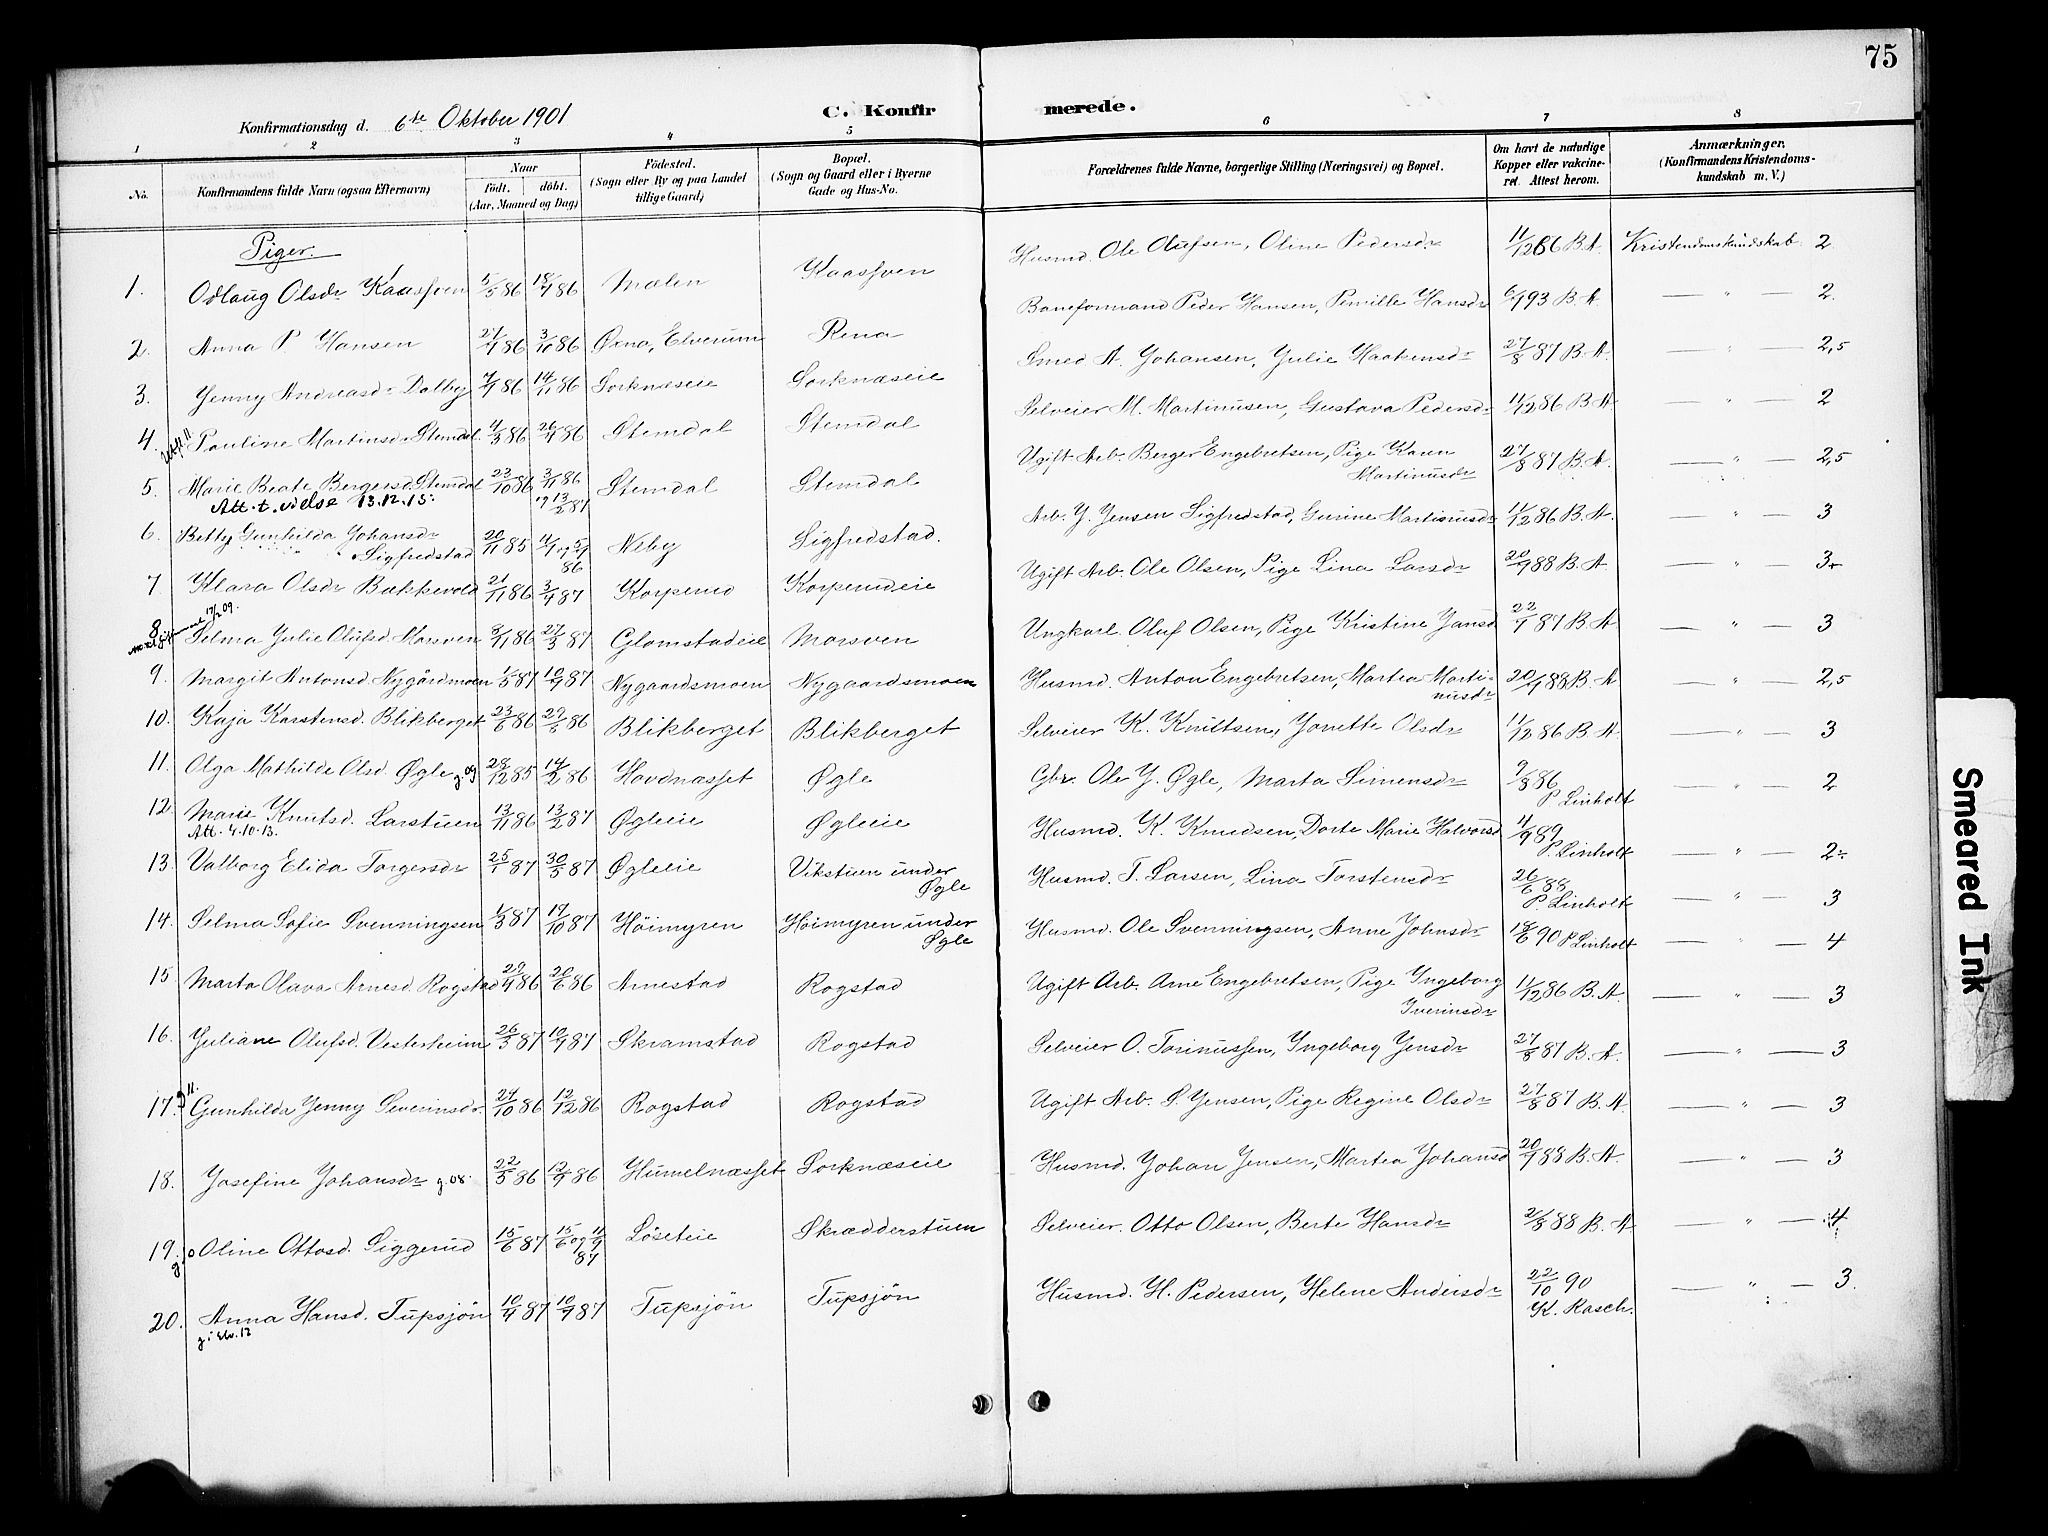 75
Konfirmationsdag d. 6te Oktober 1901 C. Konfirmerede.
1 2 3 4 5 6 7 8
No. Konfirmandens fulde Navn (ogsaa Efternavn) Naar født. døbt. (Aar, Maaned og Dag) Födested. (Sogn eller By og paa Landet tillige Gaard) Bopæl. (Sogn og Gaard eller i Byerne Gade og Hus-No. Forældrenes fulde Navne, borgerlige Stilling (Næringsvei) og Bopæl. Om havt de naturlige Kopper eller vakcineret. Attest herom. Anmærkninger. (Konfirmandens Kristendomskundskab m. V.)
Piger.
1. Odlaug Olsdr Kaasven 5/5 86 18/7 86 Mælen Kaasven Husmd. Ole Olufsen, Oline Pedersdr 11/12 86 B.A. Kristendomskundskab 2
2. Anna P. Hansen 27/7 86 3/10 86 Øxna, Elverum Rena Baneformand Peder Hansen, Pernille Hansdr 6/7 93 B.A. — " — 2.
3. Jenny Andreasdr Dalby 7/7 86 14/11 86 Sorknæseie Sorknæseie Smed A. Johansen, Julie Haakensdr 27/8 87 B.A. — " — 2,5
4. Pauline Martinsdr Stemdal 4/3 86 26/4 86 Stemdal Stemdal Selveier M. Martinusen, Gustava Pedersdr 11/12 86 B.A. — " — 2
5. Marie Beate Bergersd. Stemdal 23/10 86 3/11 86 og 13/2 87 Stemdal Stemdal Ugift Arb. Berger Engebretsen, Pige Karen Martinusdr 27/8 87 B.A. — " — 2,5
Att. t. vielse 13.12.15.
6. Betty Gunhilda Johansdr Sigfredstad 20/11 85 Neby Sigfredstad. Arb. J. Jensen Sigfredstad, Gurine Martinusdr 11/12 86 B.A. — " — 3
7. Klara Olsdr Bakkevold 21/11 86 3/4 87 Korperud Korperudeie Ugift Arb. Ole Olsen, Pige Lina Larsdr 20/9 88 B.A. — " — 3
8. Selma Julie Olufsd. Morsven 8/11 86 27/3 87 Glomstadeie Morsven Ungkarl Oluf Olsen, Pige Kristine Jansd 22/9 87 B.A. — " — 3
17/2 09.
9. Margit Antonsd. Nygårdmoen 1/5 87 10/9 87 Nygaardsmoen Nygaardsmoen Husmd. Anton Engebretsen, Martea Martinusdr 20/9 88 B.A. — " — 2,5
10. Kaja Karstensd. Blikberget 23/6 86 29/8 86 Blikberget Blikberget Selveier K. Knutsen, Jonette Olsdr 11/12 86 B.A. — " — 3
11. Olga Mathilde Olsd. Øgle g. 09 28/12 85 14/2 86 Hovdnæsset Øgle Gbr. Ole J. Øgle, Marta Simensdr 9/8 86 P. Linholt — " — 2
12. Marie Knutsd. Larstuen 13/11 86 13/2 87 Øgleie Øgleie Husmd. K. Knudsen, Dorte Marie Halvorsd 4/9 89 P. Linholt — " — 2-
Att. 4.10.13.
13. Valborg Elida Torgersdr 25/1 87 30/5 87 Øgleie Vikstuen under Øgle Husmd. T. Larsen, Lina Torstensdr 26/6 88 P. Linholt — " — 3
14. Selma Sofie Svenningsen 1/3 87 17/10 87 Höimyren Höimyren under Øgle Husmd. Ole Svenningsen, Anne Johnsdr 18/6 90 P. Linholt — " — 4
15 Marta Olava Arnesd. Rogstad 29/4 86 20/6 86 Arnestad Rogstad Ugift Arb. Arne Engebretsen, Pige Ingeborg Iverinsdr 11/12 86 B.A. — " — 3
16. Juliane Olufsd. Vesterheim 26/3 87 10/9 87 Skramstad Rogstad Selveier O. Torinussen, Ingeborg Jensdr 27/8 87 B.A. — " — 3
17. g 11. Gunhilda Jenny Severinsdr. 24/10 86 12/12 86 Rogstad Rogstad Ugift Arb. S. Jensen, Pige Regine Olsdr 27/8 87 B.A. — " — 3
18. Josefine Johansdr g. 08. 22/5 86 12/9 86 Humelnæsset Sorknæseie Husmd. Johan Jensen, Martea Johansd 20/9 88 B.A. — " — 3
19. Oline Ottosd. Siggerud 15/6 87 15/6 og 4/9 87 Löseteie Skrædderstuen Selveier. Otto Olsen, Berte Hansdr 2/8 88 B.A. — " — 4
20. Anna Hansd. Tupsjön 10/4 87 10/9 87 Tupsjön Tupsjön Husmd. H. Pedersen, Helene Andersdr 22/10 90 K. Rasch. — " — 3.
g. i Elv. 12
Smeared Ink